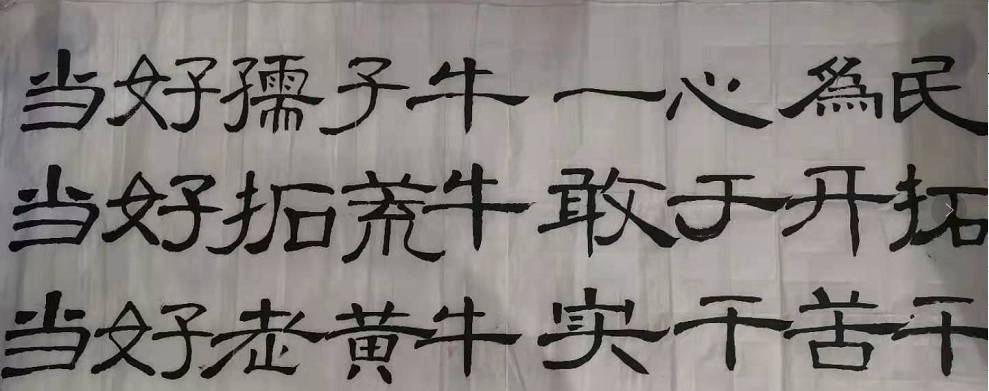 当好孺子牛 一心為民
当好拓荒牛 敢于开拓
当好老黄牛 实干苦干